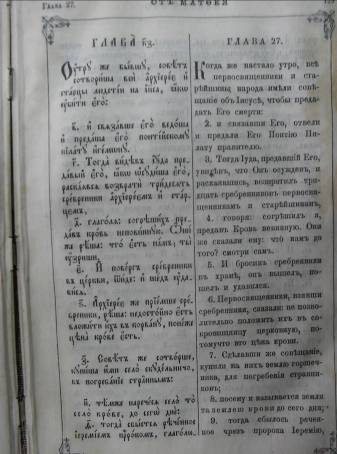 Глава 27.
ОТЪ МАТѲЕЯ
ГЛАВА к҃з.
Оу҆́тру же бы́вшу, совѣ́тъ
сотвори́ша всѝ а҆рхїере́є и҆
ста́рцы людсті́и на і҆и҃са, ꙗ҆́кѡ
ᲂу҆би́ти є҆го̀:
в҃. и҆ свѧза́вше є҆го̀ ведо́ша
и҆ преда́ша є҆го̀ понті́йскомꙋ
пїла́тꙋ и҆ге́мѡнꙋ.
г҃. Тогда̀ ви́дѣвъ і҆ꙋ́да пре-
да́вый є҆го̀, ꙗ҆́кѡ ѡ҆сꙋди́ша є҆го̀,
раска́ѧвсѧ возвратѝ три́десѧть
сре́бреники а҆рхїере́ємъ и҆ ста́р-
цємъ,
д҃. глаго́лѧ: согрѣши́хъ пре-
да́въ кро́вь непови́нную. Ѻ҆ни́
же рѣ́ша: что̀ є҆́сть на́мъ; ты̀
ᲂу҆́зриши.
є҃. И҆ пове́ргъ сре́бреники
въ це́ркви, ѿи́де: и҆ ше́дъ ᲂу҆да-
ви́сѧ.
ѕ҃. А҆рхїере́є же прїе́мше сре́-
бреники, рѣ́ша: недосто́йно є҆́сть
вложи́ти и҆̀хъ въ корва́нꙋ, поне́же
цѣна̀ кро́ве є҆́сть.
з҃. Совѣ́тъ же сотво́рше,
кꙋпи́ша и҆́ми село̀ скꙋде́льниче,
въ погреба́нїе стра̑ннымъ:
и҃. тѣ́мже нарече́сѧ село̀ то̀
село̀ кро́ве, до сегѡ̀ днѐ:
ѳ҃. тогда̀ сбы́стсѧ рече́нное
і҆еремі́емъ прⷪ҇ро́комъ, глаго́лю-
ГЛАВА 27.
Когда же настало утро, всѣ
первосвященники и ста-
рѣйшины народа имѣли совѣ-
щаніе объ Іисусѣ, чтобы преда-
дать Его смерти:
2. и связавши Его, отвели
и предали Его Понтію Пи-
лату правителю.
3. Тогда Іуда, предавшій Его,
увидѣвъ, что Онъ осужденъ, и
раскаявшись, возвратилъ трид-
цать сребренниковъ первосвя-
щенникамъ и старѣйшинамъ,
4. говоря: согрѣшилъ я,
предавъ Кровь невинную. Они
же сказали ему: что намъ до
того? смотри самъ.
5. И бросивъ сребренники
въ храмѣ, онъ вышелъ, по-
шелъ и удавился.
6. Первосвященники, взявши
сребренники, сказали: не позво-
лительно положить ихъ въ со-
кровищницу церковную, по-
тому что это цѣна крови.
7. Сдѣлавши же совѣщаніе,
купили на нихъ землю горшеч-
ника, для погребенія стран-
никовъ;
8. посему и называется земля
та землею крови до сего дня;
9. тогда сбылось речен-
ное чрезъ пророка Іеремію,